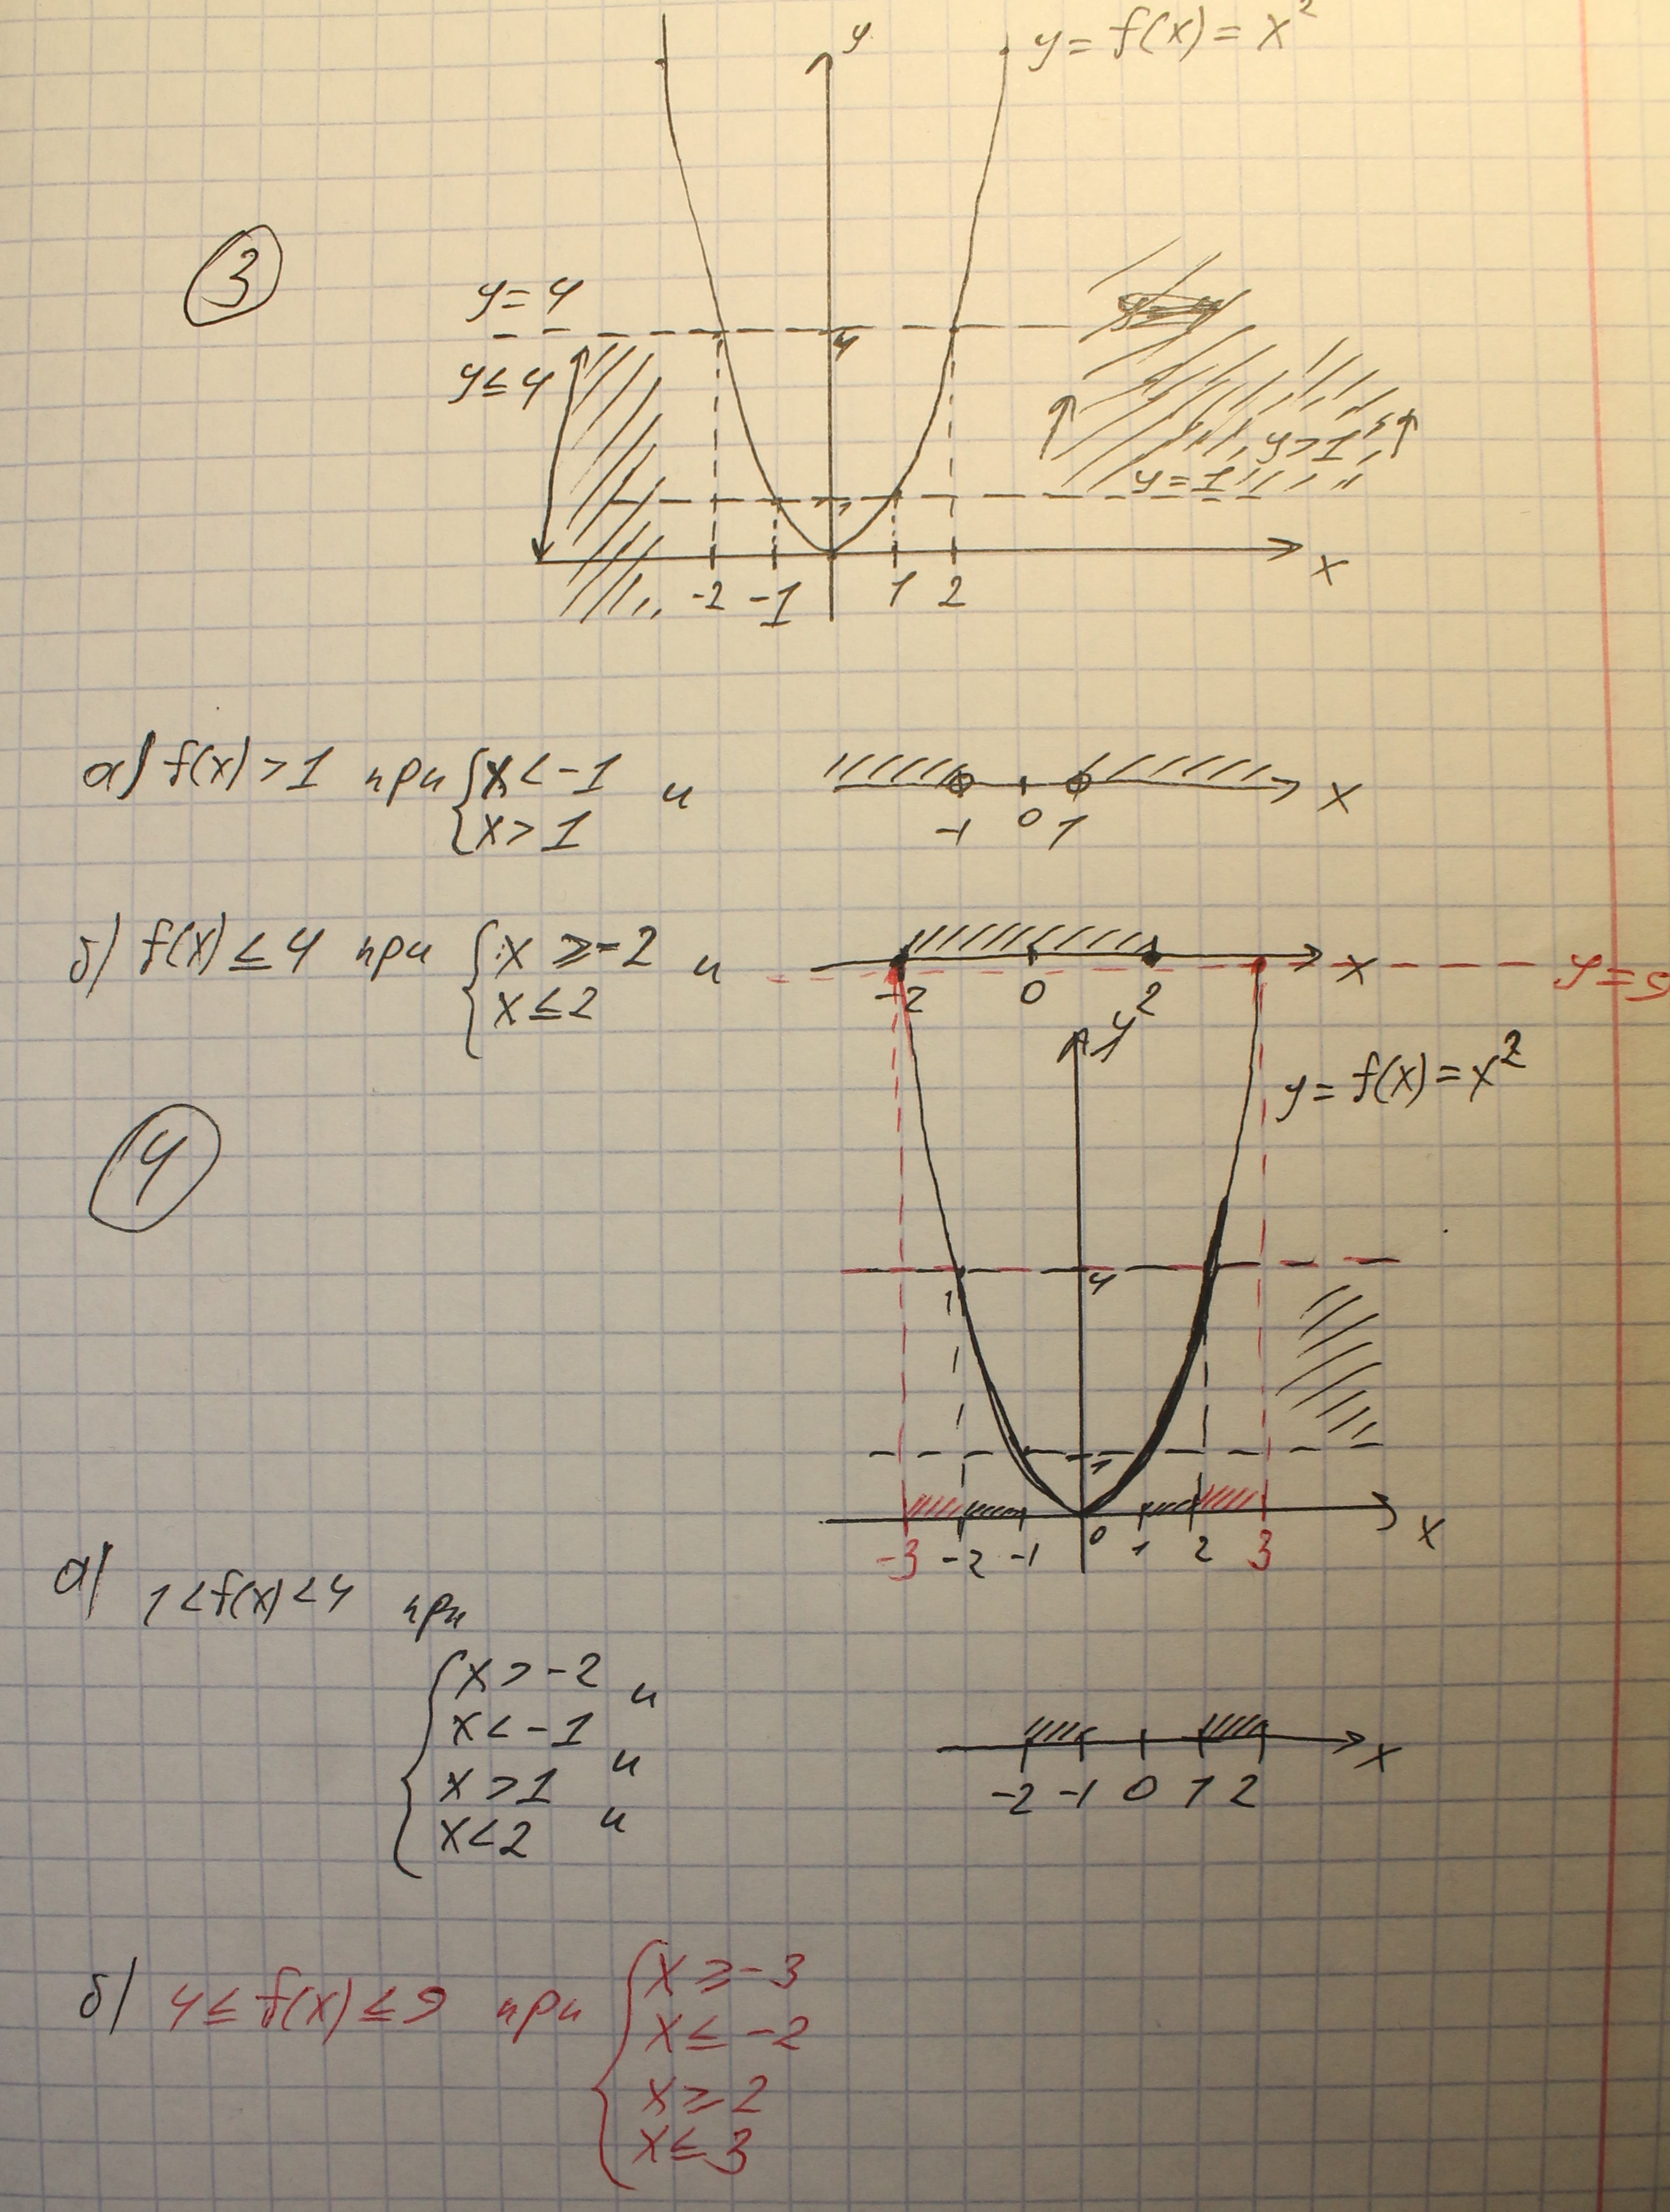 y = f(x) = x²
y
3
y = 4
4
y ≤ 4
y > 1
y = 1
1
-2 -1 1 2
x
а) f(x) > 1 при { x < -1 и
x > 1
x
-1 0 1
б) f(x) ≤ 4 при { x ≥ -2 и
x ≤ 2
x
y = 9
-2 0 2
y
y = f(x) = x²
4
4
1
-3 -2 -1 0 1 2 3
x
а) 1 < f(x) < 4 при
{ x > -2 и
x < -1
и
x > 1
и
x < 2
x
-2 -1 0 1 2
б) 4 ≤ f(x) ≤ 9 при { x ≥ -3
x ≤ -2
x ≥ 2
x ≤ 3